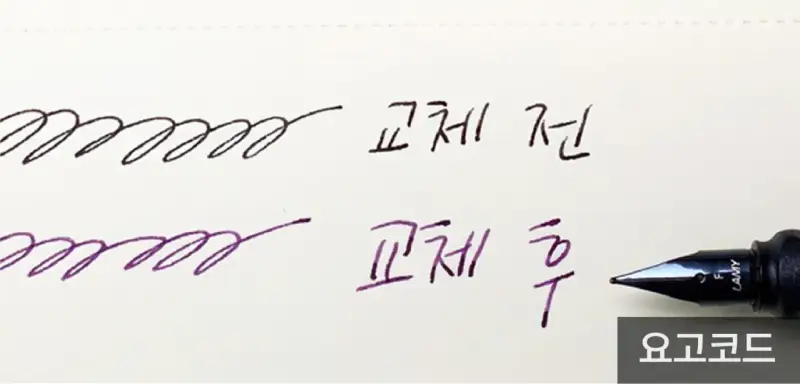 교체 전
교체 후
F
LAMY
요고코드